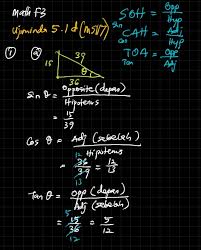 Math F3
Ujiminda 5.1d (MS87)
SOH = Opp/Hyp
Sin
CAH = Adj/Hyp
Cos
TOA = Opp/Adj
Tan
① ⓐ
39
15
θ
36
Sin θ = Opposite (depan)/Hipotenus
= 15/39
Cos θ = Adj (sebelah)/Hipotenus
= 36/39 = 12/13
12
13
Tan θ = Opp (depan)/Adj (sebelah)
= 15/36 = 5/12
5
12